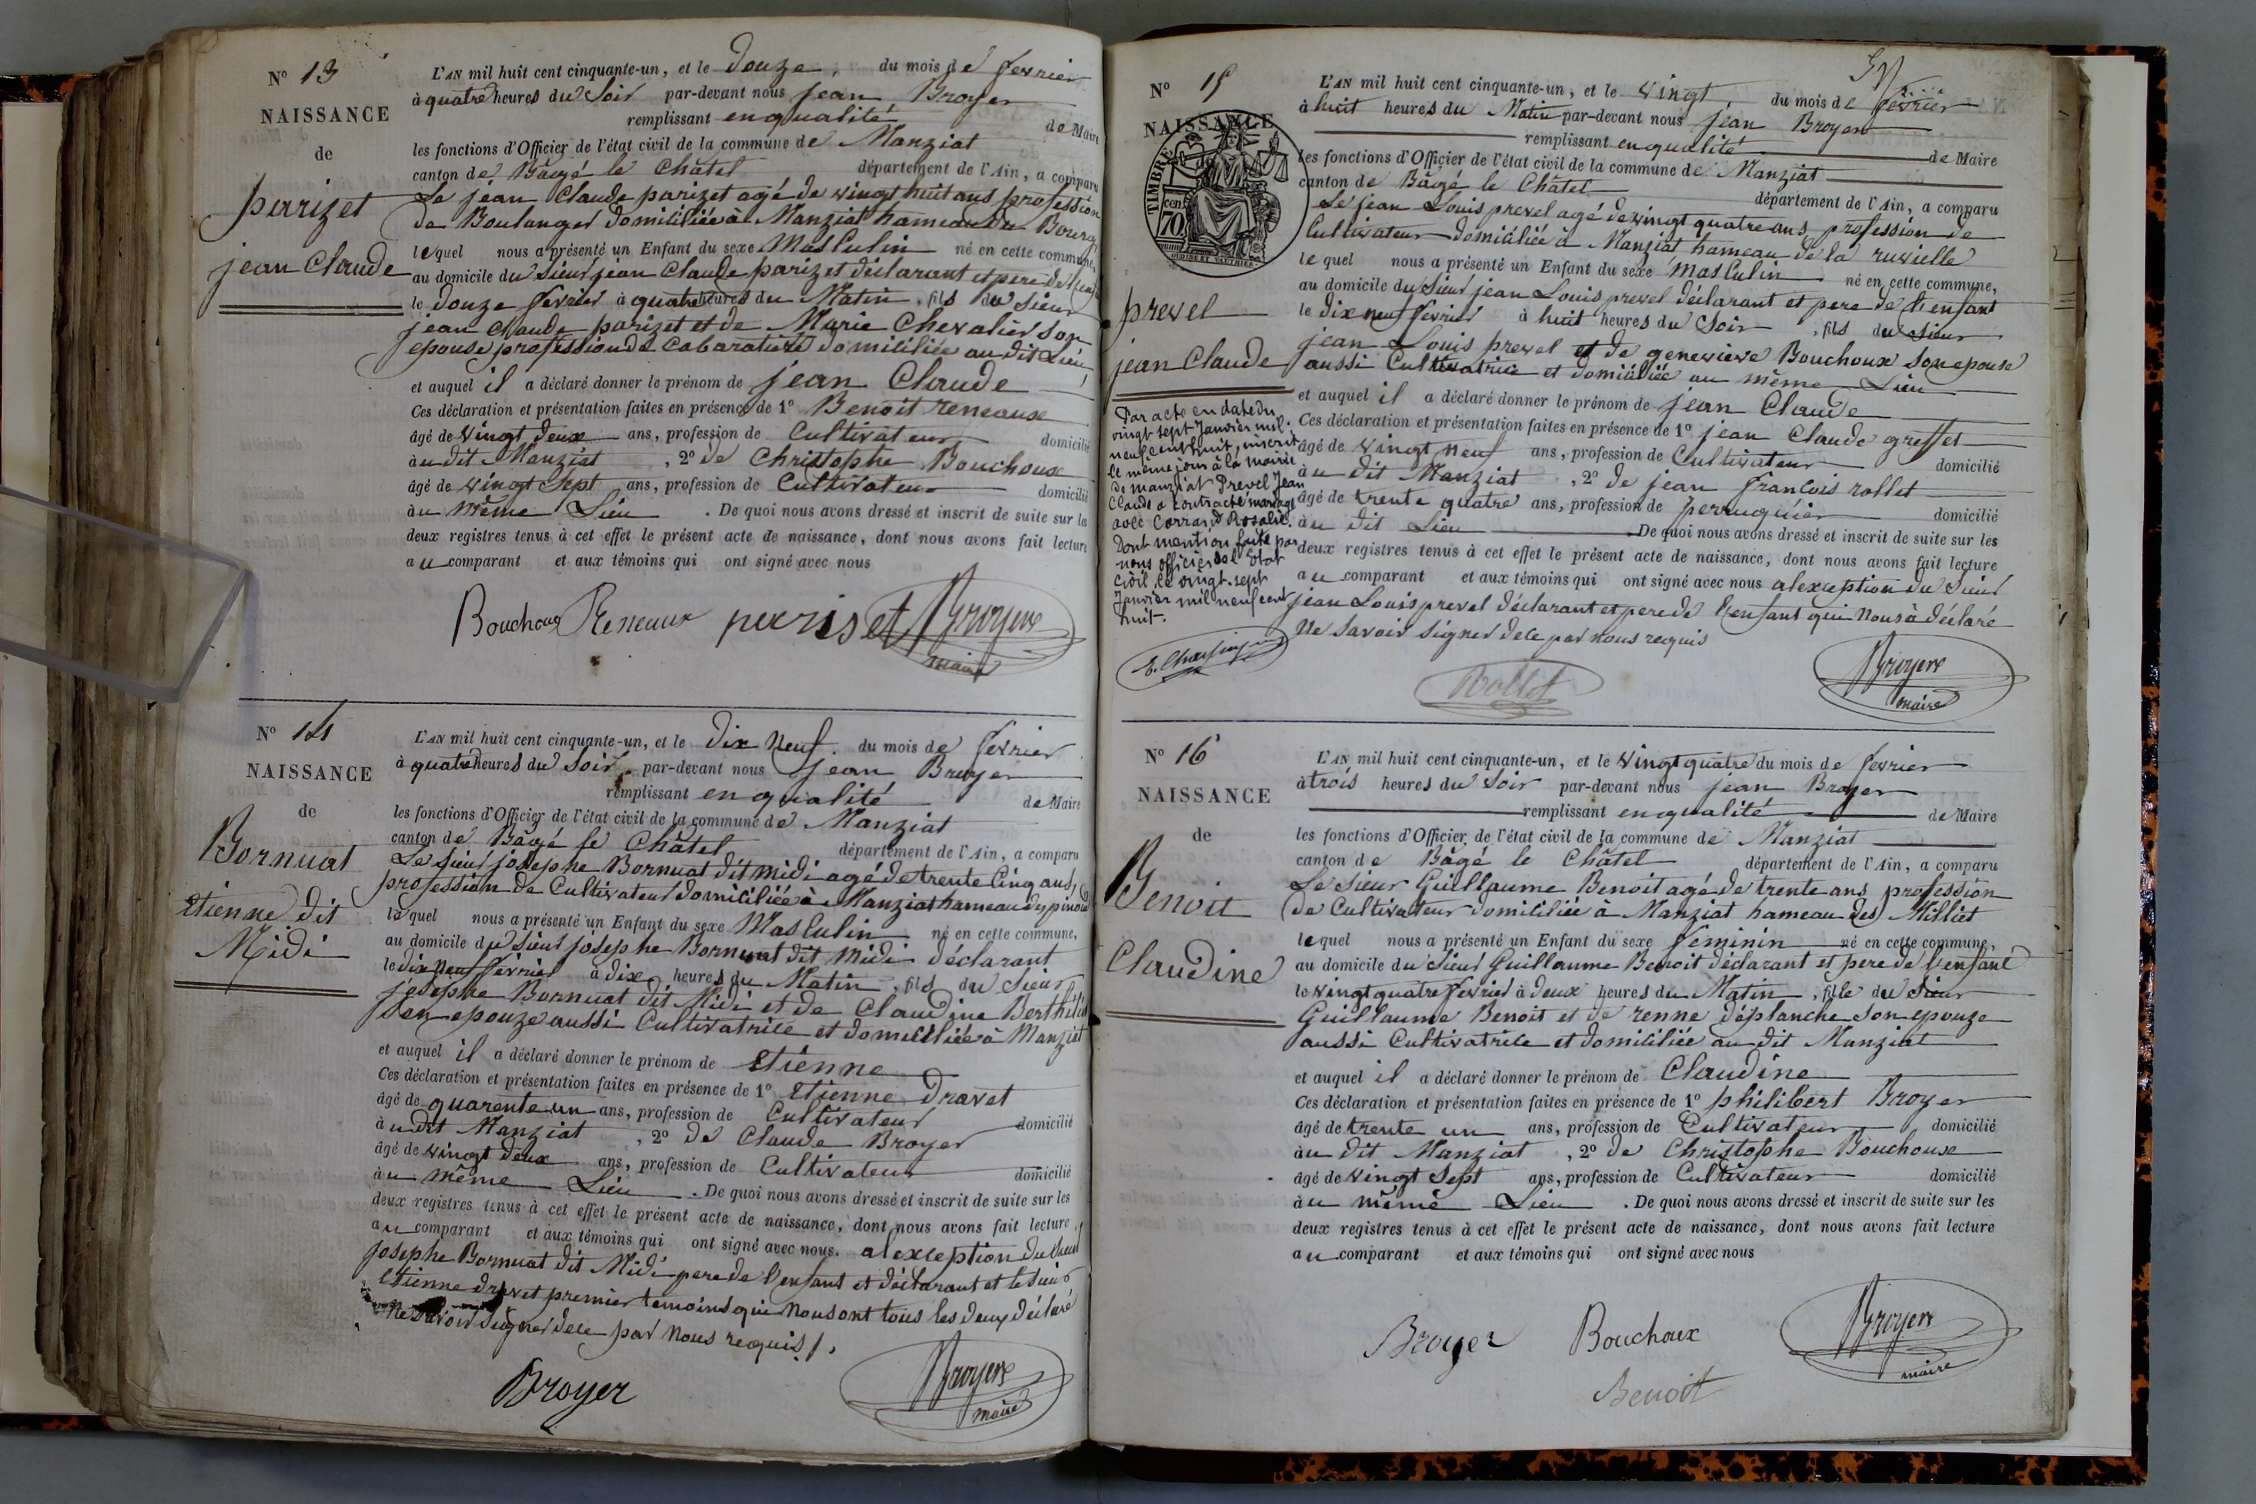 N° 13
NAISSANCE
de
parizet
jean Claude
L'AN mil huit cent cinquante-un, et le Douze, du mois de fevrier
à quatre heures du Soir par-devant nous jean Broyer
remplissant en qualité de Maire
les fonctions d'Officier de l'état civil de la commune de Manziat
canton de Bâgé le Châtel département de l'Ain, a comparu
Le jean Claude parizet agé de vingt huit ans profession
de Boulanger domiciliée à Manziat hameau du Bourg
lequel nous a présenté un Enfant du sexe Masculin né en cette commune,
au domicile du Sieur jean Claude parizet déclarant et pere de l'enfant
le douze fevrier à quatre heures du Matin, fils du Sieur
jean Claude parizet et de Marie Chevalier son
epouse profession de Cabaratiere domiciliée au dit Lieu,
et auquel il a déclaré donner le prénom de jean Claude
Ces déclaration et présentation faites en présence de 1° Benoit reneaux
âgé de vingt deux ans, profession de Cultivateur domicilié
à u dit Manziat, 2° de Christophe Bouchoux
âgé de vingt sept ans, profession de Cultivateur domicilié
à u même Lieu. De quoi nous avons dressé et inscrit de suite sur les
deux registres tenus à cet effet le présent acte de naissance, dont nous avons fait lecture
au comparant et aux témoins qui ont signé avec nous
Bouchoux Reneaux pariset Broyer
maire
N° 14
NAISSANCE
de
Bornuat
etienne dit
Midi
L'AN mil huit cent cinquante-un, et le dix neuf. du mois de fevrier
à quatre heures du Soir, par-devant nous jean Broyer
remplissant en qualité de Maire
les fonctions d'Officier de l'état civil de la commune de Manziat
canton de Bâgé le Châtel département de l'Ain, a comparu
Le sieur josephe Bornuat dit midi agé de trente Cinq ans,
profession de Cultivateur domiciliée à Manziat hameau
lequel nous a présenté un Enfant du sexe Masculin né en cette commune,
au domicile du Sieur josephe Bornuat dit Midi déclarant
le dix neuf fevrier à dix heures du Matin, fils du Sieur
josephe Bornuat dit Midi et de Claudine
son epouze aussi Cultivatrice et domiciliée à Manziat
et auquel il a déclaré donner le prénom de Etienne
Ces déclaration et présentation faites en présence de 1° Etienne Dravet
âgé de quarente un ans, profession de Cultivateur domicilié
à u dit Manziat, 2° de Claude Broyer
âgé de vingt deux ans, profession de Cultivateur domicilié
à u même Lieu. De quoi nous avons dressé et inscrit de suite sur les
deux registres tenus à cet effet le présent acte de naissance, dont nous avons fait lecture
au comparant et aux témoins qui ont signé avec nous. alexception du sieur
josephe Bornuat dit Midi pere de l'enfant et déclarant et le sieur
Etienne dravet premier temoins qui nous ont tous les deux déclaré
ne savoir signer dele par nous requis/.
Broyer Broyer
maire
N° 15
NAISSANCE
TIMBRE
70
prevel
jean Claude
Par acte en date du
vingt sept Janvier mil
neuf cent huit, inscrit
le même jour à la mairie
de Manziat Prevel Jean
Claude a contracté mariage
avec Corrand Rosalie.
Dont mention faite par
nous officier de l'Etat
civil le vingt-sept
Janvier mil neuf cent
huit.
L'AN mil huit cent cinquante-un, et le vingt du mois de fevrier
à huit heures du Matin par-devant nous jean Broyer
remplissant en qualité de Maire
les fonctions d'Officier de l'état civil de la commune de Manziat
canton de Bâgé le Châtel département de l'Ain, a comparu
Le jean Louis prevel agé de vingt quatre ans profession de
Cultivateur domiciliée à Manziat hameau de la ruvielle
lequel nous a présenté un Enfant du sexe Masculin né en cette commune,
au domicile du Sieur jean Louis prevel déclarant et pere de l'enfant
le dix neuf fevrier à huit heures du Soir, fils du Sieur
jean Louis prevel et de genevieve Bouchoux son epouse
aussi Cultivatrice et domiciliée au même Lieu
et auquel il a déclaré donner le prénom de jean Claude
Ces déclaration et présentation faites en présence de 1° jean Claude greffet
âgé de vingt neuf ans, profession de Cultivateur domicilié
à u dit Manziat, 2° de jean francois rollet
âgé de trente quatre ans, profession de perruquier domicilié
à u dit Lieu De quoi nous avons dressé et inscrit de suite sur les
deux registres tenus à cet effet le présent acte de naissance, dont nous avons fait lecture
au comparant et aux témoins qui ont signé avec nous alexception du Sieur
jean Louis prevel déclarant et pere de l'enfant qui nous à déclaré
Ne savoir signer dele par nous requis
Rollet Broyer
maire
N° 16
NAISSANCE
de
Benoit
Claudine
L'AN mil huit cent cinquante-un, et le vingt quatre du mois de fevrier
à trois heures du Soir par-devant nous jean Broyer
remplissant en qualité de Maire
les fonctions d'Officier de l'état civil de la commune de Manziat
canton de Bâgé le Châtel département de l'Ain, a comparu
Le Sieur Guillaume Benoit agé de trente ans profession
de Cultivateur domiciliée à Manziat hameau des Milliet
lequel nous a présenté un Enfant du sexe feminin né en cette commune,
au domicile du Sieur Guillaume Benoit déclarant et pere de l'enfant
le vingt quatre fevrier à deux heures du Matin, fille du Sieur
Guillaume Benoit et de renne déplanche son epouze
aussi Cultivatrice et domiciliée au dit Manziat
et auquel il a déclaré donner le prénom de Claudine
Ces déclaration et présentation faites en présence de 1° philibert Broyer
âgé de trente un ans, profession de Cultivateur domicilié
à u dit Manziat, 2° de Christophe Bouchoux
âgé de vingt Sept ans, profession de Cultivateur domicilié
à u même Lieu. De quoi nous avons dressé et inscrit de suite sur les
deux registres tenus à cet effet le présent acte de naissance, dont nous avons fait lecture
au comparant et aux témoins qui ont signé avec nous
Broyer Bouchoux Broyer
maire
Benoit